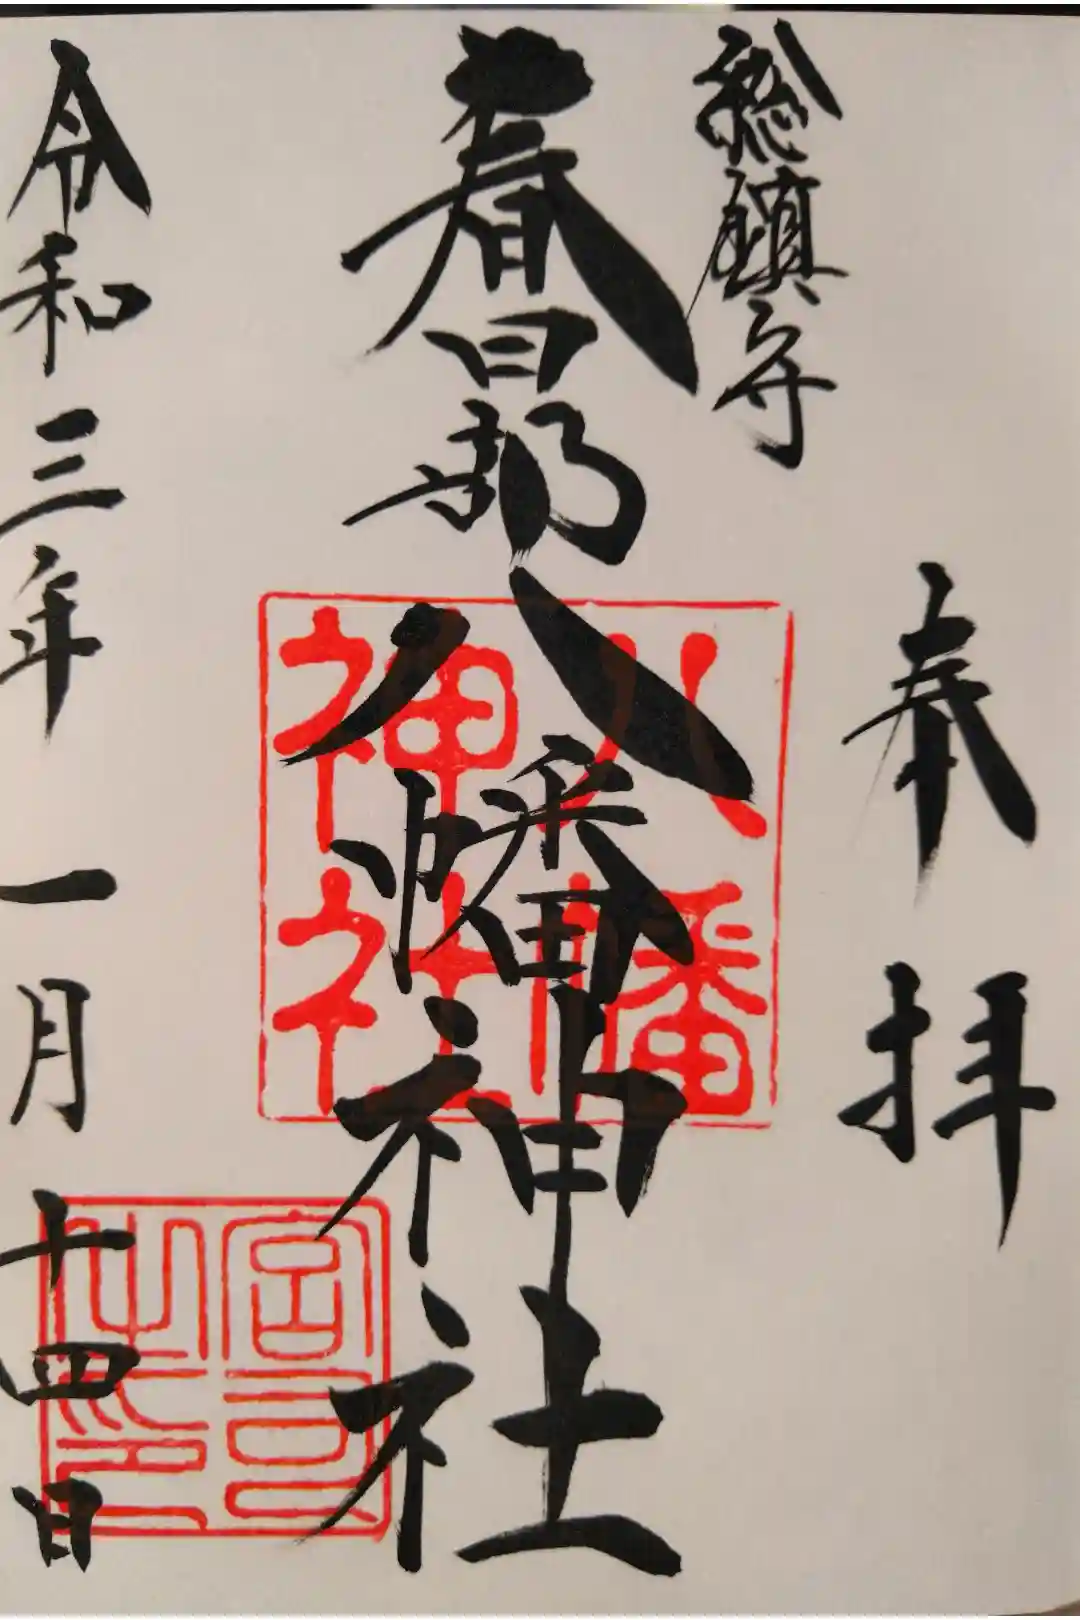 奉拝
総鎮守
春日部八幡神社
八幡
神社
宮司
之印
令和三年一月十四日